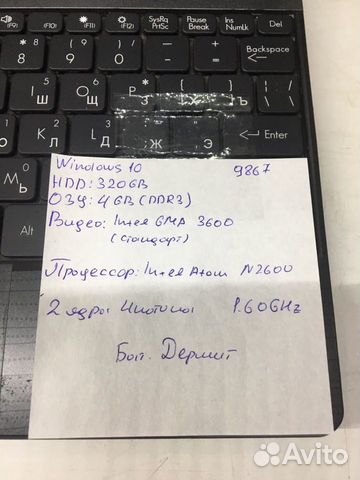 SysRq
PrtSc
Pause
Break
Ins
NumLk
Del
(F9)
(F10)
(F11)
(F12)
8
9
0
Backspace
Ш
Щ
З
Х
Ъ
О
Л
Д
Ж
Э
Enter
Ь
Windows 10 9867
HDD: 320GB
ОЗУ: 4GB (DDR3)
Видео: Intel GMA 3600
(стандарт)
Процессор: Intel Atom N2600
2 ядра 1.60GHz
Бат. Держит
Avito